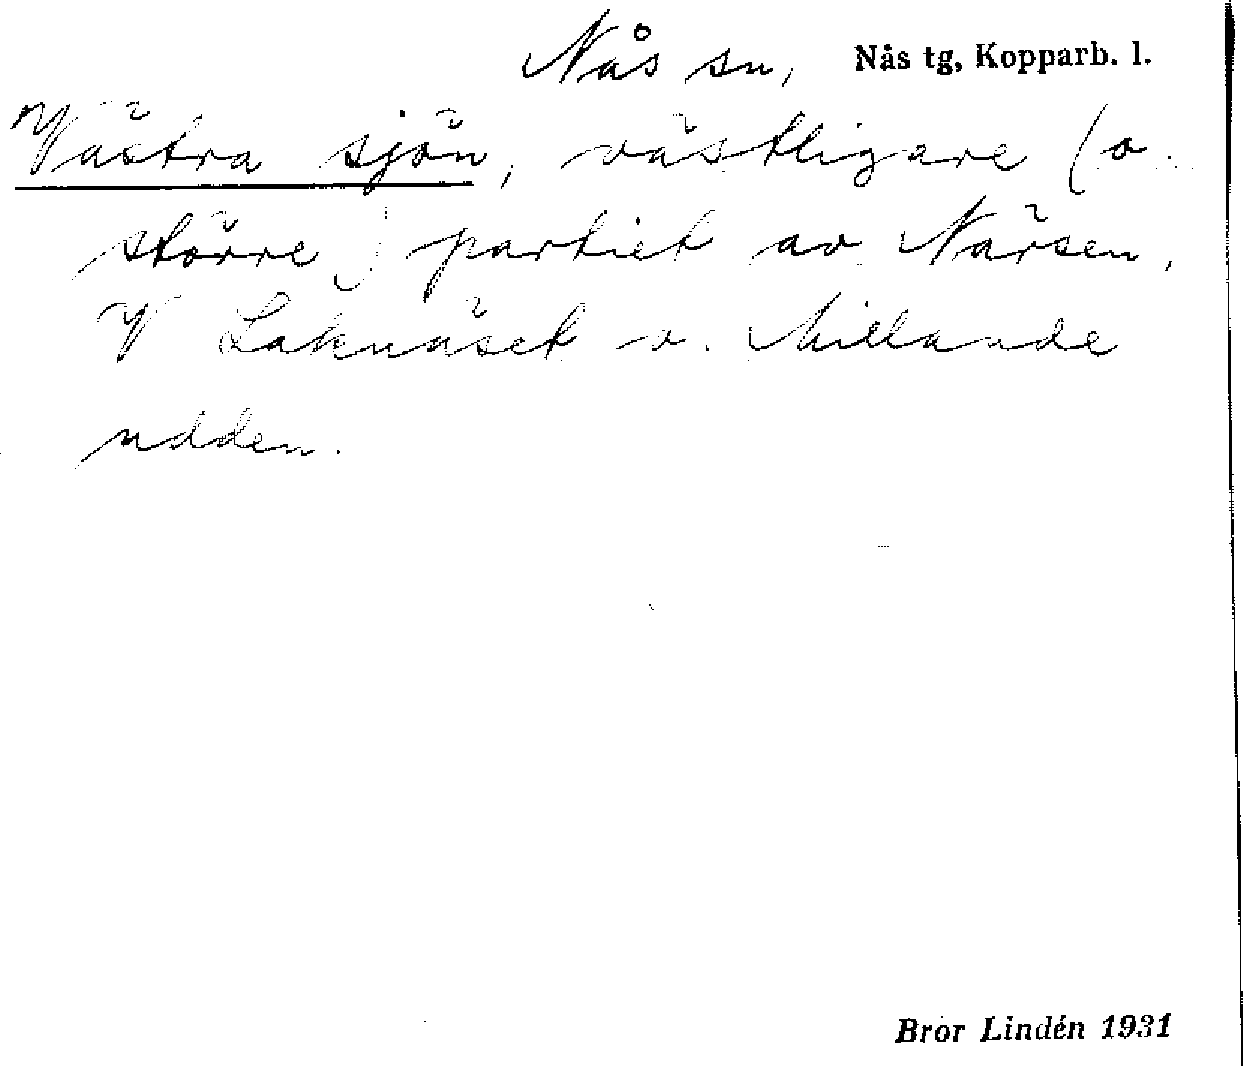 Nås sn, Nås tg, Kopparb. l.
Västra sjön, västligare (o.
större) partiet av Närsen,
V Laknäset o. Millande
udden.
Bror Lindén 1931